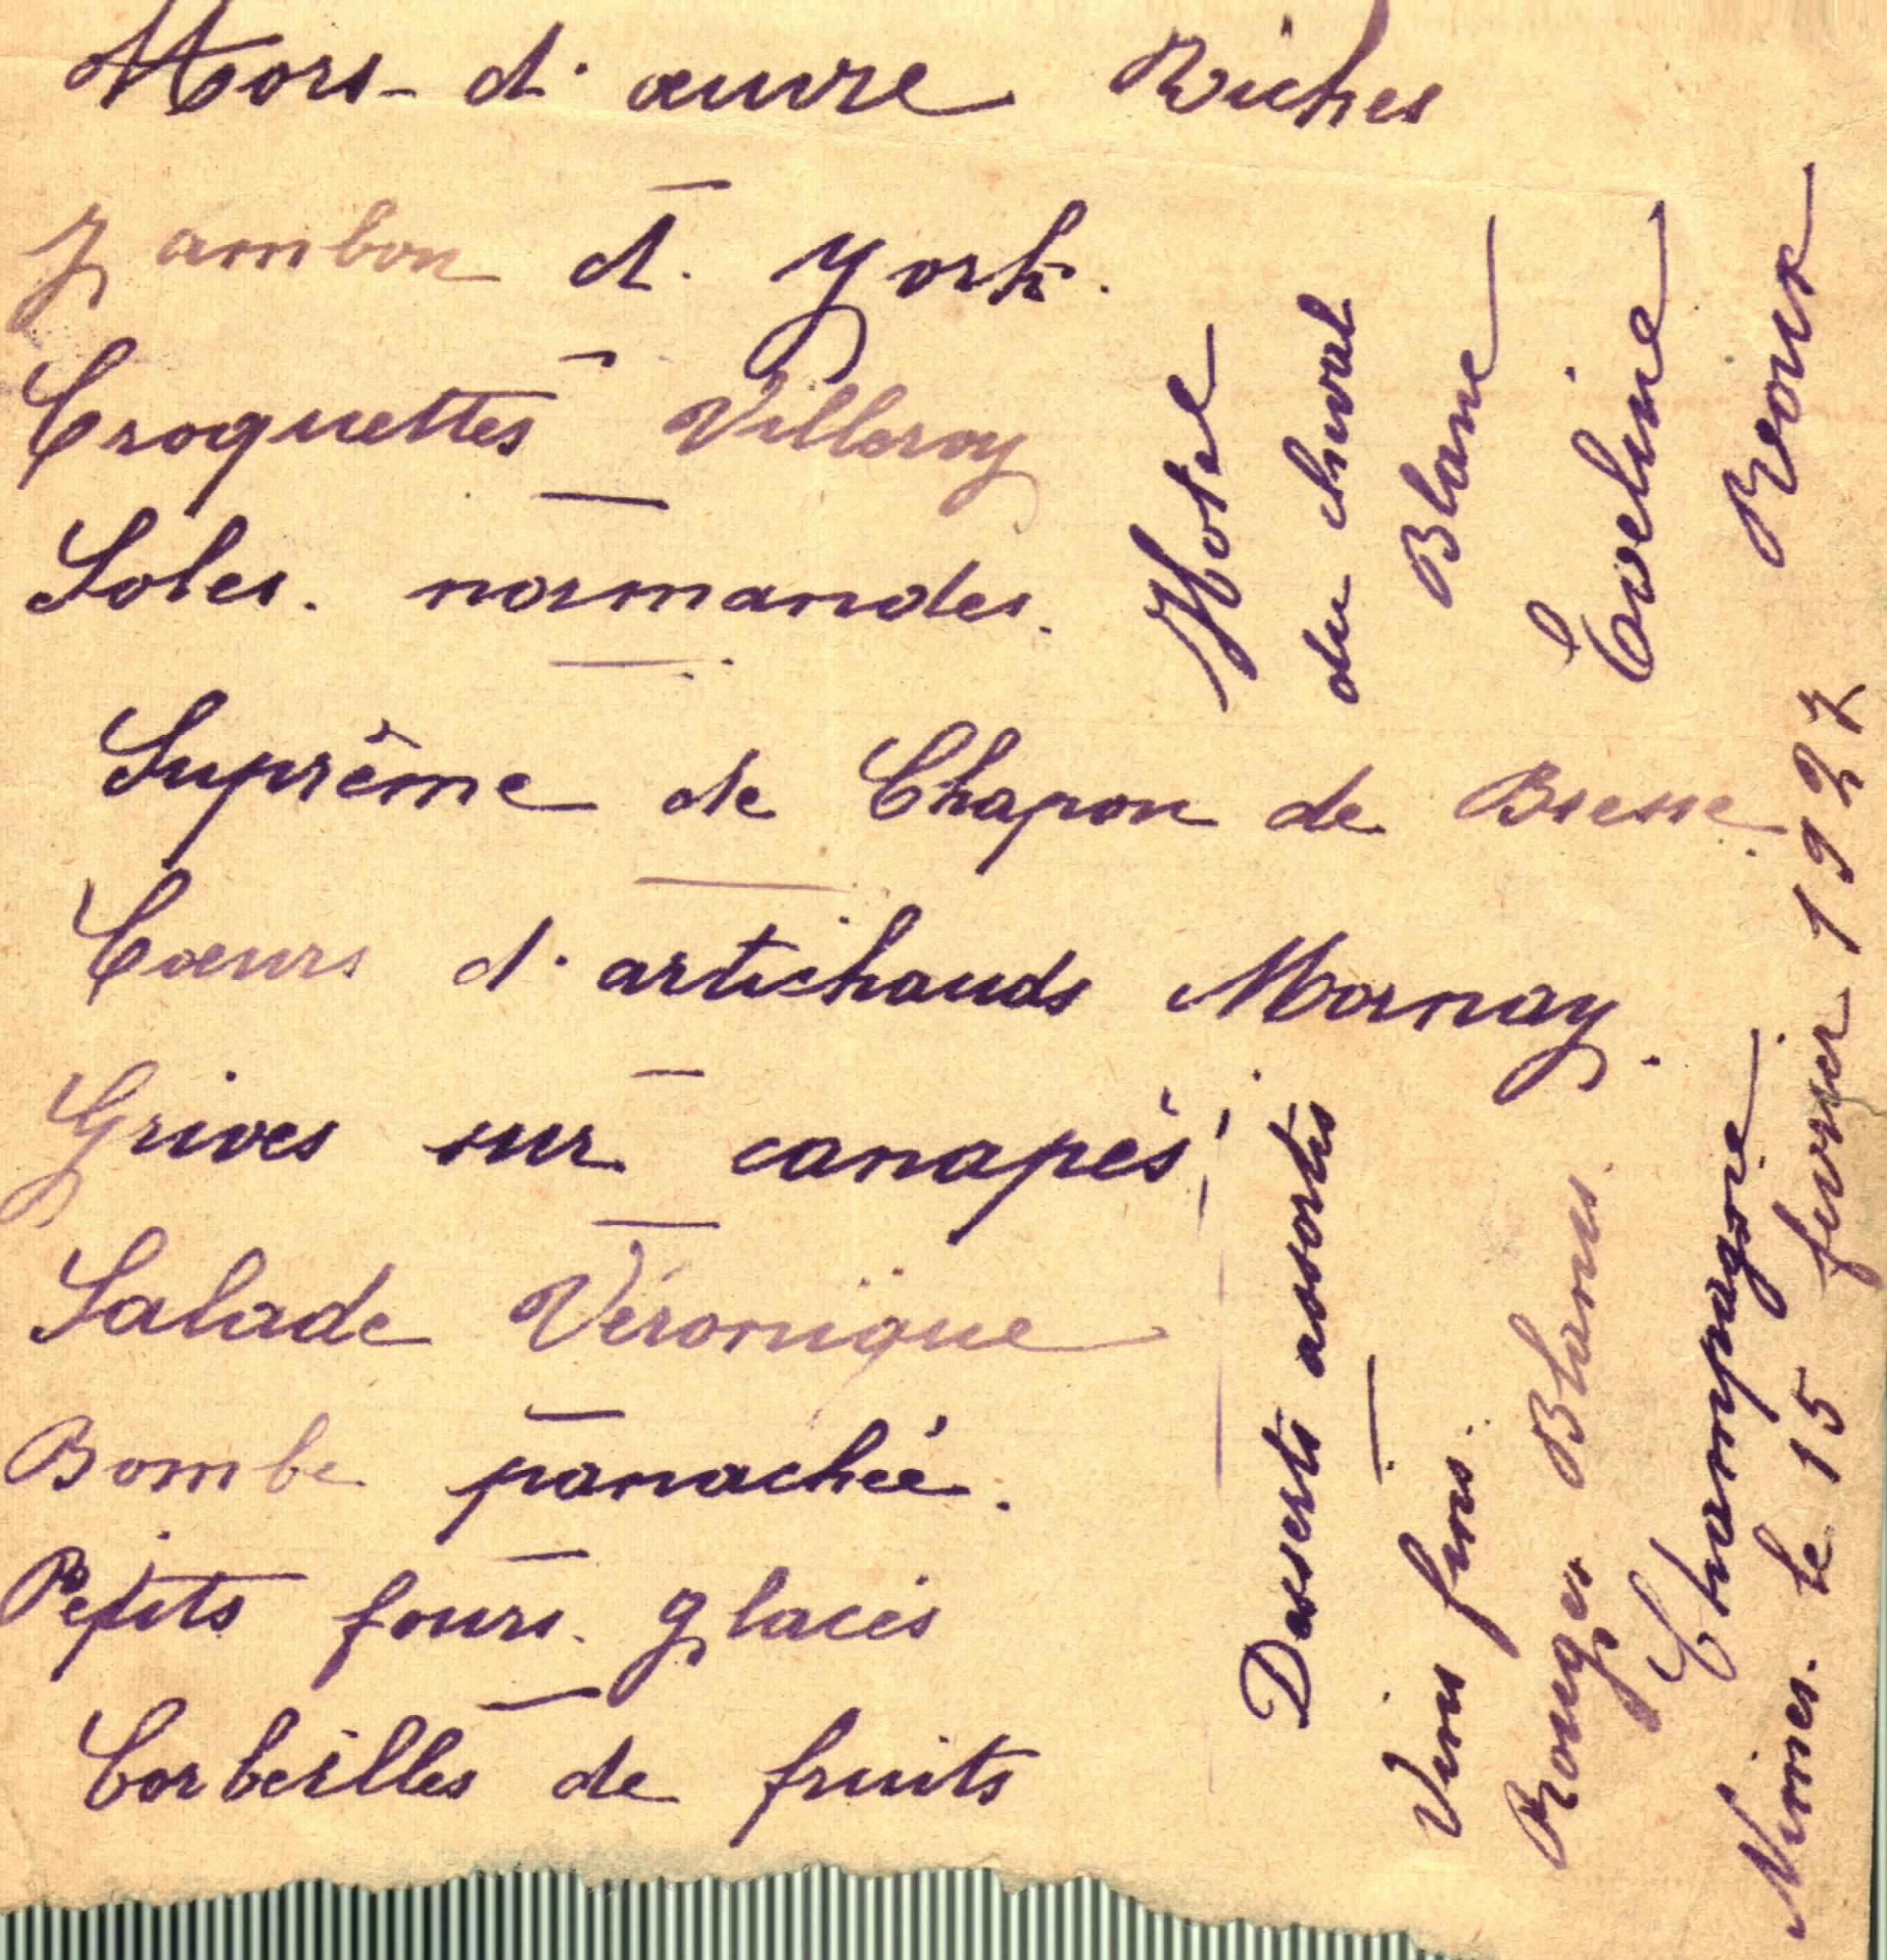 Hors-d'œuvre Riches
Jambon d'York.
Croquettes Villeroy
Soles normandes.
Suprême de Chapon de Bresse.
Cœurs d'artichauds Mornay.
Grives sur canapés
Salade Véronique
Bombe panachée.
Petits fours glacés
Corbeilles de fruits
Desserts assortis
Vins fins.
Rouges Blancs.
Champagne
Nîmes. le 15 fevrier 1927
Hotel
du cheval
Blanc
Eveline
Roux